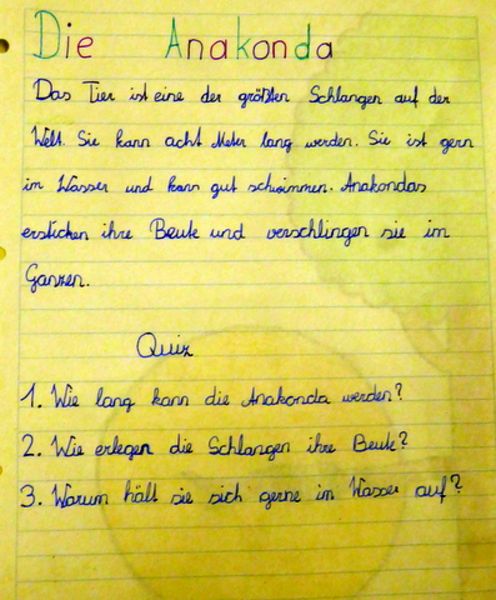 Die Anakonda
Das Tier ist eine der größten Schlangen auf der
Welt. Sie kann acht Meter lang werden. Sie ist gern
im Wasser und kann gut schwimmen. Anakondas
ersticken ihre Beute und verschlingen sie im
Ganzen.
Quiz
1. Wie lang kann die Anakonda werden?
2. Wie erlegen die Schlangen ihre Beute?
3. Warum hält sie sich gerne im Wasser auf?